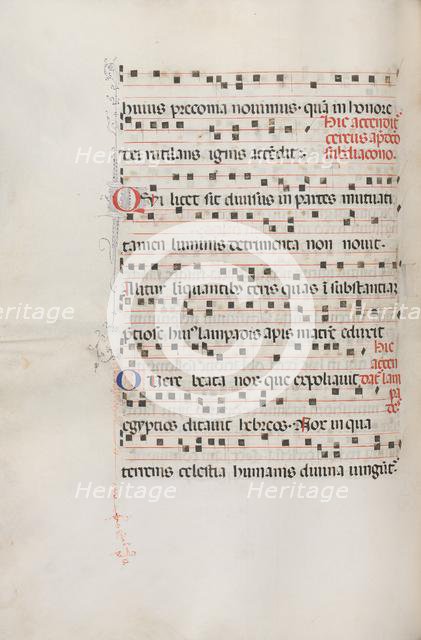 huius preconia novimus · qua in honore
Hic accendit
cereus a preco
subdiacono.
dei rutilans ignis accendit ·
QVi licet sit divisus in partes mutuati
tamen luminis detrimenta non novit ·
Alitur liquantibz ceris quas i substantiar
p̄ciose huiꝰ lampadis apis mater eduxit
Hic
accen
dat lam
pa
des
O Vere beata nox · que expoliavit
egyptios ditavit hebreos · Nox in qua
terrenis celestia humanis divina iungūt᷑
Heritage
Heritage
Heritage
Heritage
Heritage
Heritage